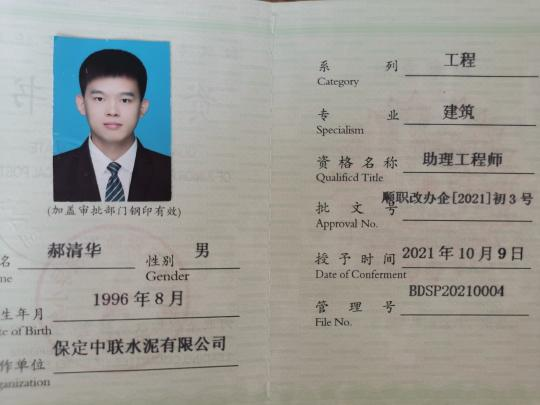 (加盖审批部门钢印有效)
名 郝清华 性别 男
me Gender
生年月 1996 年 8 月
te of Birth
作单位 保定中联水泥有限公司
ganization
系 列 工程
Category
专 业 建筑
Specialism
资格名称 助理工程师
Qualificd Title
批 文 号 顺职改办企[2021]初3号
Approval No.
授予时间 2021年10月9日
Date of Conferment
管 理 号 BDSP20210004
File No.